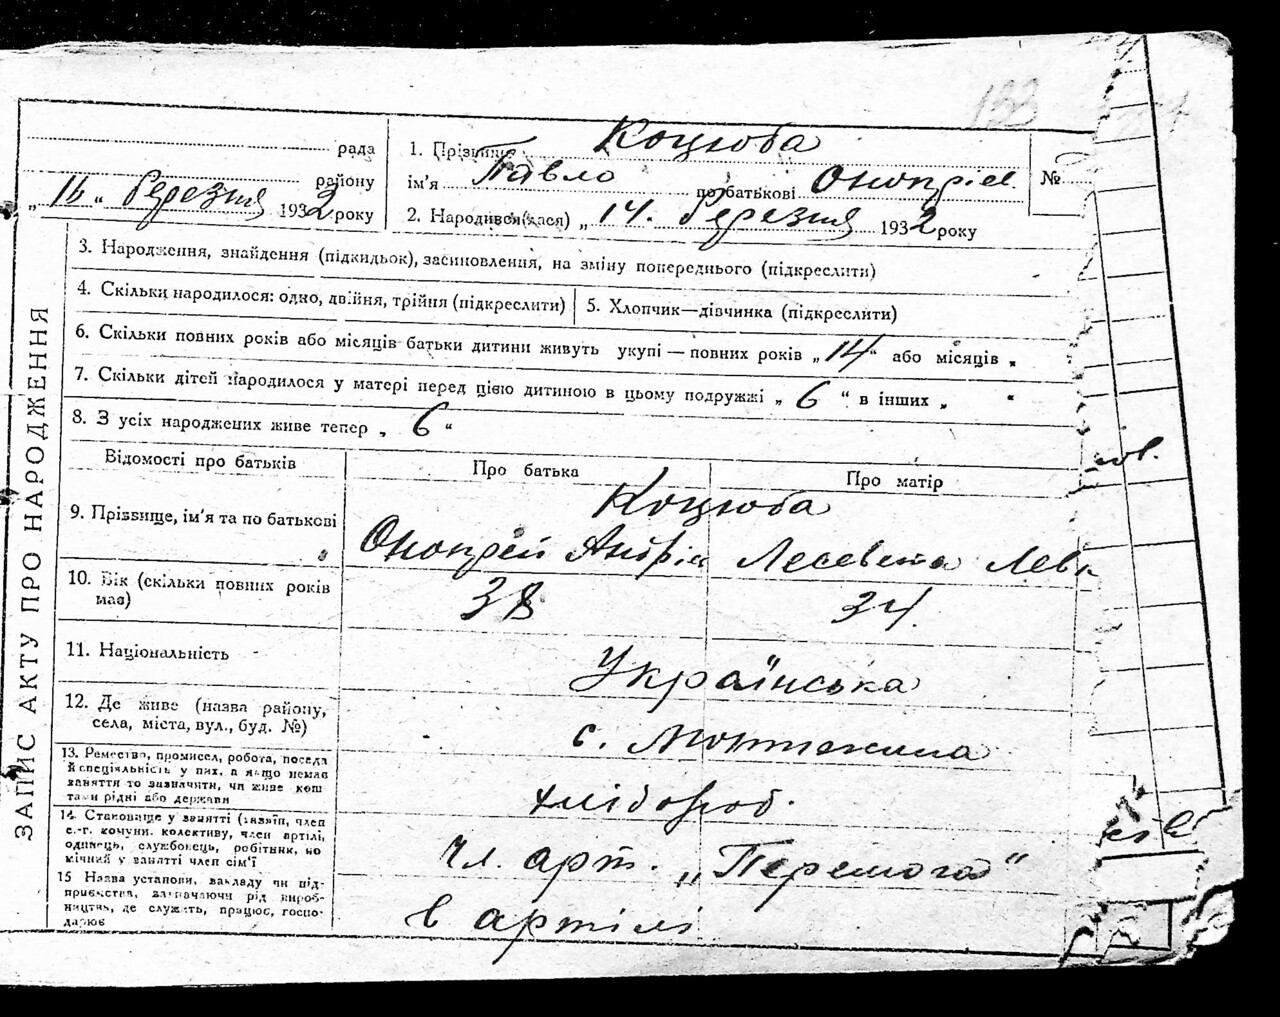 133
рада
району
„ 16 “ Березня 1932 року
1. Прізвище Коцюба
ім'я Павло по батькові Онопріев.
№
2. Народився(лася) „ 14. Березня 1932 року
3. Народження, знайдення (підкидьок), засиновлення, на зміну попереднього (підкреслити)
4. Скільки народилося: одно, двійня, трійня (підкреслити)
5. Хлопчик—дівчинка (підкреслити)
6. Скільки повних років або місяців батьки дитини живуть укупі — повних років „ 14 “ або місяців „
7. Скільки дітей народилося у матері перед цією дитиною в цьому подружжі „ 6 “ в інших „ “
8. З усіх народжених живе тепер „ 6 “
Відомості про батьків
Про батька
Про матір
9. Прізвище, ім'я та по батькові
Коцюба
Онопрей Андрія Лесевета Левк
10. Вік (скільки повних років має)
38
34.
11. Національність
Українська
12. Де живе (назва району,
села, міста, вул., буд. №)
с.
13. Ремество, промисел, робота, посада
й спеціяльність у них, а якщо немає
заняття то зазначити, чи живе кош
тами рідні або держави
хлібороб.
14. Становище у занятті (хазяїн, член
с.-г. комуни, колективу, член артілі,
одинець, службовець, робітник, по
мічний у занятті член сім'ї
чл. арт. „Перемога“
15 Назва установи, закладу чи під-
приємства, зазначаючи рід вироб-
ництва, де служить, працює, госпо-
дарює
в артілі
ЗАПИС АКТУ ПРО НАРОДЖЕННЯ